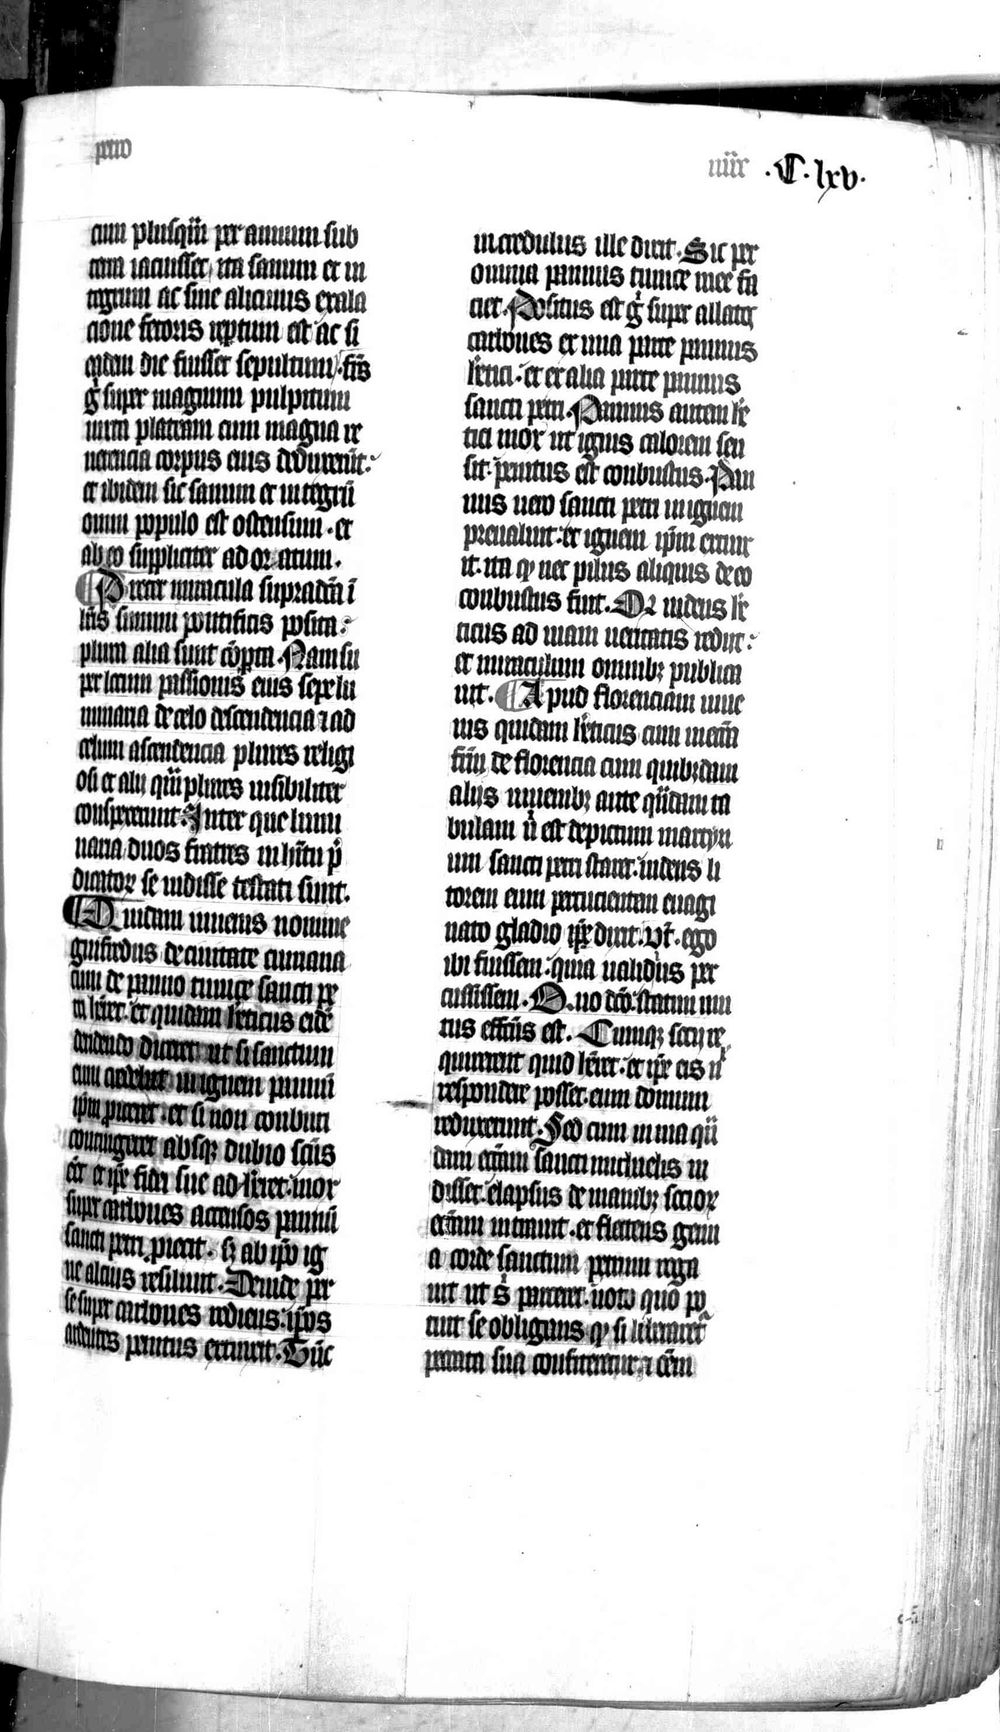 petro
iiiix .C.lxv.
cum plusq̃m per annum sub
terra iacuisset, ita sanum et in
tegrum ac sine alicuius exala
cione fetoris reptum est ac si
eadem die fuisset sepultum. frēs
g̊ super magnum pulpitum
iuxta plateam cum magna re
uerencia corpus eius deduxerūt:
et ibidem sic sanum et integrū
omni populo est ostensum. et
ab eo suppliciter adoratum.
Preter miracula supradc̄a ī
lr̄is summi pontificis posita:
plura alia sunt cōpta. Nam su
per locum passionis eius sepe lu
minaria de celo descendencia ⁊ ad
celum ascendencia plures religi
osi et alij q̃m plures visibiliter
conspexerunt. Inter que lumi
naria duos fratres in hītu p̄
dicatoꝝ se vidisse testati sunt.
Quidam iuuenis nomine
guifredus de ciuitate cumana
cum de panno tunice sancti pe
tri hēret. et quidam hēticus eidē
dendendo diceret ut si sanctum
eum crederet in ignem pannū
ip̄m proiceret. et si non conburi
contingeret absqꝫ dubio scūs
eēt et ip̄e fidei sue adhereret. mox
super carbones accensos pannū
sancti petri proiecit. sꝫ ab ip̄o ig
ne alcius resiliuit. Deinde per
se super carbones rediens: ip̄os
ardentes penitus extinxit. Tūc
incredulus ille dixit. Sic per
omnia pannus tunice mee fa
ciet. Positus est g̊ super allatos
carbones ex una parte pannus
hētici. et ex alia parte pannus
sancti petri. Pannus autem hē
tici mox ut ignis calorem sen
sit. penitus est conbustus. Pan
nus uero sancti petri in ignem
preualuit: et ignem ip̄m extinx
it. ita qꝫ nec pilus aliquis de eo
conbustus fuit. Qd videns hē
ticus ad viam ueritatis redijt:
et miraculum omnibꝫ publica
uit. Apud florenciam iuue
nis quidam hēticus cum
staret de florencia cum quibꝫdam
alijs iuuenibꝫ ante q̃dam ta
bulam ū est depictum martyri
um sancti petri staret. videns li
ctorem eum percucientem euagi
nato gladio ip̄e dixit. vt̄. ego
ibi fuissem: quia ualidius per
cussissem. Quo dc̄o: statim mu
tus effc̄us est. Cumqꝫ socij re
quirerent quid hēret. et ip̄e eis n̄
respondere posset. eum domum
reduxerunt. Sed cum in via q̃n
dam eccl̄iam sancti michaelis vi
disset. elapsus de manibꝫ socioꝝ
eccl̄iam intrauit. et flectens genu
a corde sanctum petrum roga
uit ut s̄ parceret. uoto quo po
tuit se obligans qꝫ si liberaret
peccata sua confiteretur ⁊ om̄em